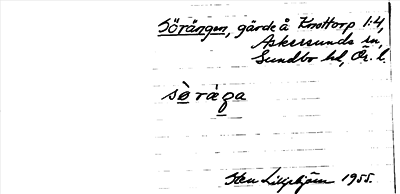 Sörängen, gärde å Knottorp 1:4,
Askersunds sn,
Sundbo hd, Ör. l.
sèràga
Sten Lilljebjörn 1955.